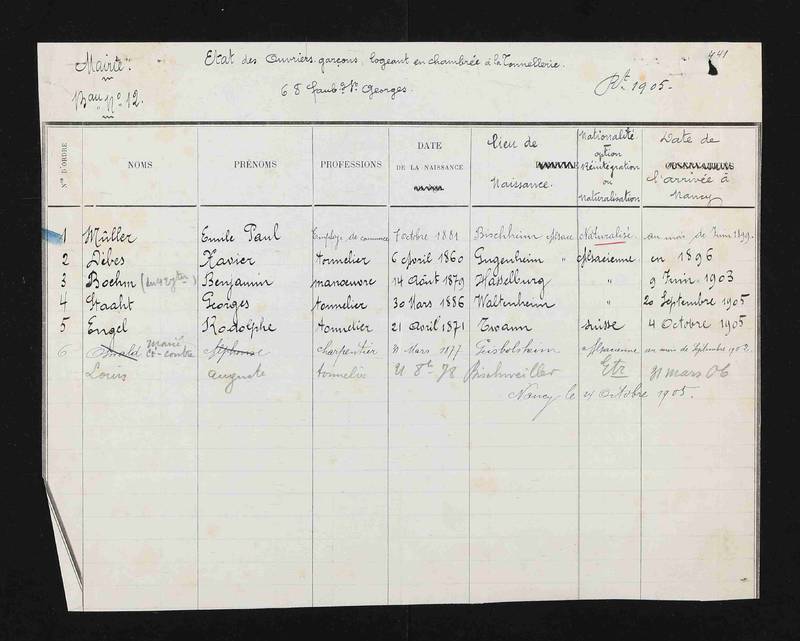 441
Mairie.
Etat des Ouvriers garçons, logeant en chambrée à la Tonnellerie.
Bau No 12.
68 faubg St Georges.
Rt 1905.
Nos D'ORDRE NOMS PRÉNOMS PROFESSIONS DATE DE LA NAISSANCE Lieu de Naissance. Nationalité option Réintégration ou Naturalisation Date de l'arrivée à Nancy
1 Müller Emile Paul Employé de commerce 7 octobre 1881 Bischheim Alsace Naturalisé au mois de Juin 1899.
2 Débes Xavier tonnelier 6 Avril 1860 Eugenheim " Alsacienne en 1896
3 Boehm Benjamin manoeuvre 14 Août 1879 Hasselburg " 9 Juin 1903
4 Staaht Georges tonnelier 30 Mars 1886 Waltenheim " 20 Septembre 1905
5 Engel Rodolphe tonnelier 21 Avril 1871 Twann suisse 4 Octobre 1905
6 Oswald Marié ci-contre Alphonse charpentier 31 Mars 1877 Geisbolsheim Alsacienne au mois de Septembre 1902.
Louis Auguste tonnelier 21 8bre 78 Bischweiller Etr 31 mars 06
Nancy le 21 Octobre 1905.